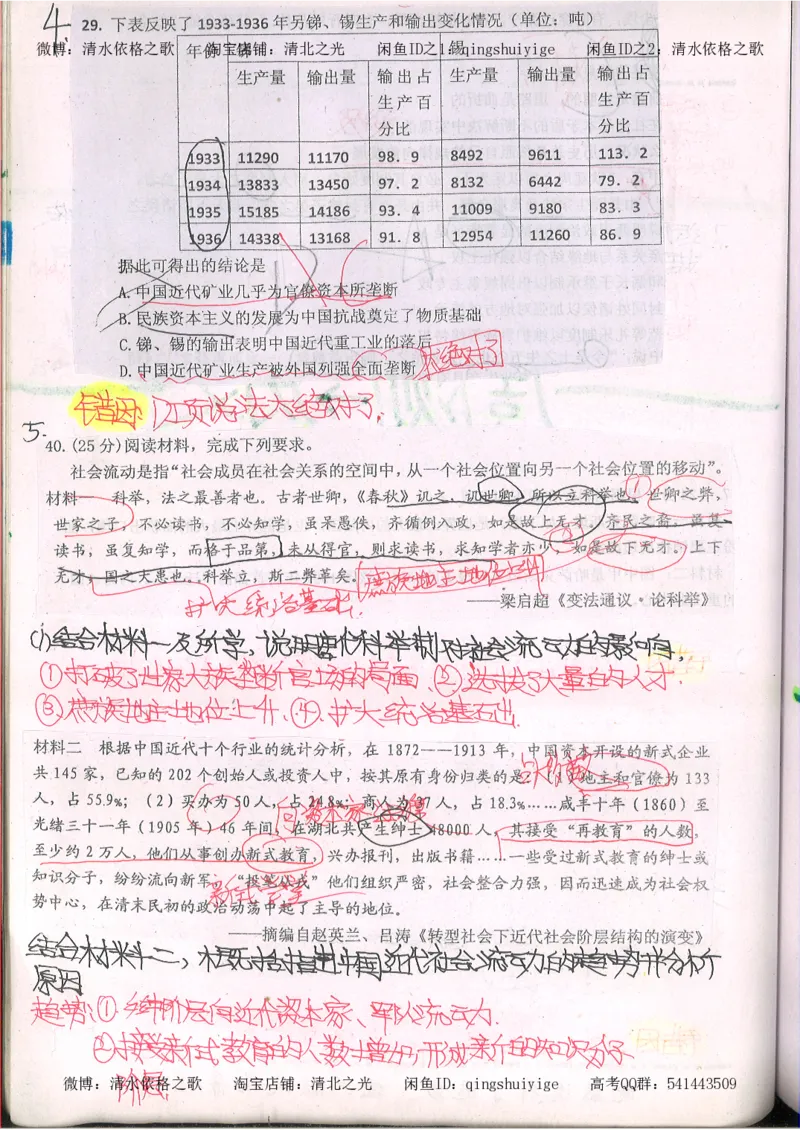 4.
29. 下表反映了 1933-1936 年另锑、锡生产和输出变化情况（单位：吨）
微博：清水依格之歌 淘宝店铺：清北之光 闲鱼ID之1：qingshuiyige 闲鱼ID之2：清水依格之歌
年份 锑 锡
生产量 输出量 输出占生产百分比 生产量 输出量 输出占生产百分比
1933 11290 11170 98. 9 8492 9611 113. 2
1934 13833 13450 97. 2 8132 6442 79. 2
1935 15185 14186 93. 4 11009 9180 83. 3
1936 14338 13168 91. 8 12954 11260 86. 9
据此可得出的结论是
A. 中国近代矿业几乎为官僚资本所垄断
B. 民族资本主义的发展为中国抗战奠定了物质基础
C. 锑、锡的输出表明中国近代重工业的落后
D. 中国近代矿业生产被外国列强全面垄断 太绝对了
错因：D项说法太绝对了.
5.
40. (25 分) 阅读材料，完成下列要求。
社会流动是指“社会成员在社会关系的空间中，从一个社会位置向另一个社会位置的移动”。
材料一 科举，法之最善者也。古者世卿，《春秋》讥之，讥世卿，所以立科举也。世卿之弊，
世家之子，不必读书，不必知学，虽呆愚佚，齐循例入政，如是故上无才。齐民之裔，虽复
读书，虽复知学，而格于品第，未从得官，则求读书，求知学者亦少，如是故下无才。上下
无才，国之大患也。科举立，斯二弊革矣。 庶族地主地位上升
扩大统治基础.
——梁启超《变法通议·论科举》
(1) 结合材料一及所学，说明唐代科举制对社会流动的影响.
①打破了世家大族垄断官场的局面. ②选拔了大量的人才.
③庶族地主地位上升. ④扩大统治基础.
材料二 根据中国近代十个行业的统计分析，在 1872——1913 年，中国资本开设的新式企业
共 145 家，已知的 202 个创始人或投资人中，按其原有身份归类的是：（1）地主和官僚为 133
人，占 55.9%；（2）买办为 50 人，占 24.8%；商人为 37 人，占 18.3%……咸丰十年（1860）至
光绪三十一年（1905 年）46 年间，在湖北共产生绅士 48000 人，其接受“再教育”的人数，
至少约 2 万人，他们从事创办新式教育，兴办报刊，出版书籍……一些受过新式教育的绅士或
知识分子，纷纷流向新军，“投笔从戎”他们组织严密，社会整合力强，因而迅速成为社会权
势中心，在清末民初的政治动荡中起了主导的地位。
——摘编自赵英兰、吕涛《转型社会下近代社会阶层结构的演变》
结合材料二，概括指出中国近代社会流动的趋势并分析
原因
趋势：①绅阶层向近代资本家、军人流动.
②接受新式教育的人数增加，形成新的知识分子
阶层.
微博：清水依格之歌 淘宝店铺：清北之光 闲鱼ID：qingshuiyige 高考QQ群：541443509